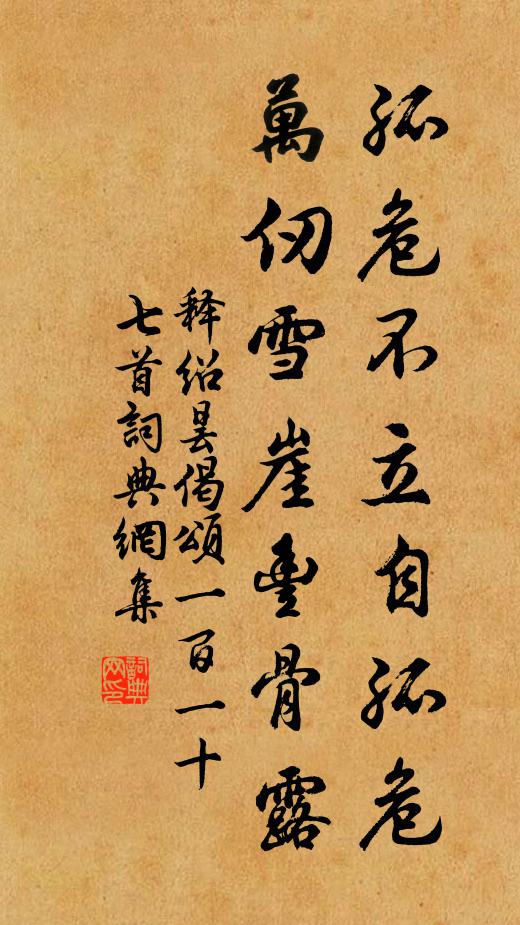 孤危不立自孤危
萬仞雪崖豐骨露
释紹昙偈頌一百一十
七首詞典網集
詞典网印